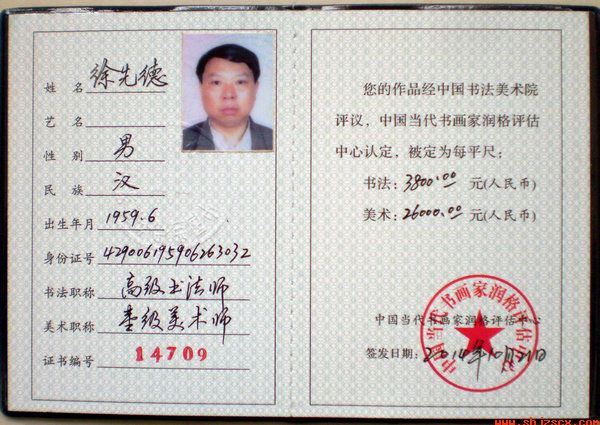 姓 名 徐先德
艺 名
性 别 男
民 族 汉
出生年月 1959.6
身份证号 429006195906263032
书法职称 高级书法师
美术职称 壹级美术师
证书编号 14709
您的作品经中国书法美术院
评议，中国当代书画家润格评估
中心认定，被定为每平尺：
书法：3800.00 元(人民币)
美术：26000.00 元(人民币)
中国当代书画家润格评估中心
签发日期：2014年10月21日
中国当代书画家润格评估中心
www.shjzscx.com